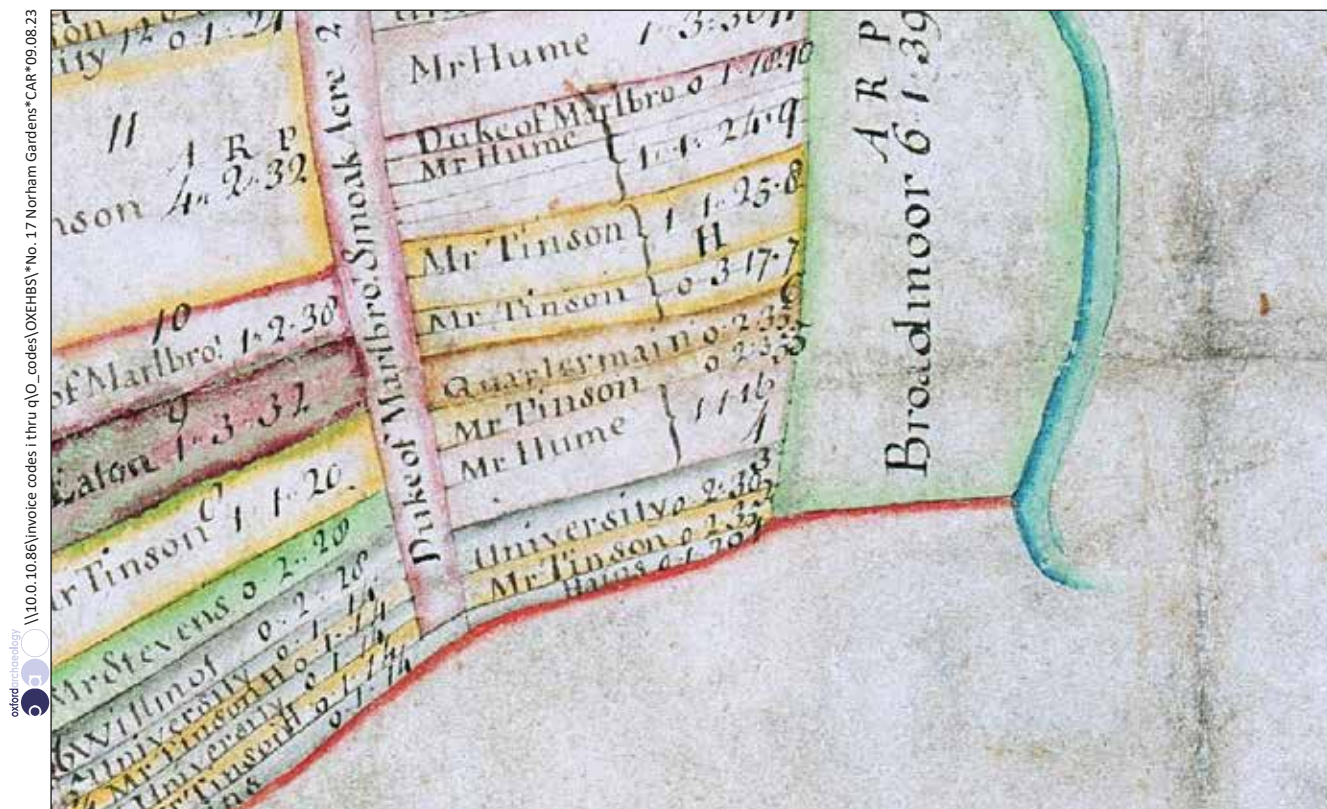 \\10.0.10.86\invoice codes i thru q\O_codes\OXEHBS\*No. 17 Norham Gardens*CAR*09.08.23
oxfordarchaeology
11
A R P
4" 2·32
10
of Marlbro! 1" 2·38
9
Eaton 1" 3" 32
Tinson 1" 1" 20
Mr Stevens 0" 2" 28
0·2·28
University 0·1·14
Mr Tinson H 0·1·14
University 0·1·14
Tinson H 0·1·14
Duke of Marlbro! Smoak Acre 2
Mr Hume
Duke of Marlbro 0 1·18·10
Mr Hume 1·1·24·9
Mr Tinson 1 1·25·8
H
Mr Tinson 0·3·17·7
6
Quartermain 0·2·35
Mr Tinson 0·2·35
Mr Hume 1 1 16
4
3
University 0 2·38
Mr Tinson 0 2·35
Hains
A R P
Broadmoor 6·1·39